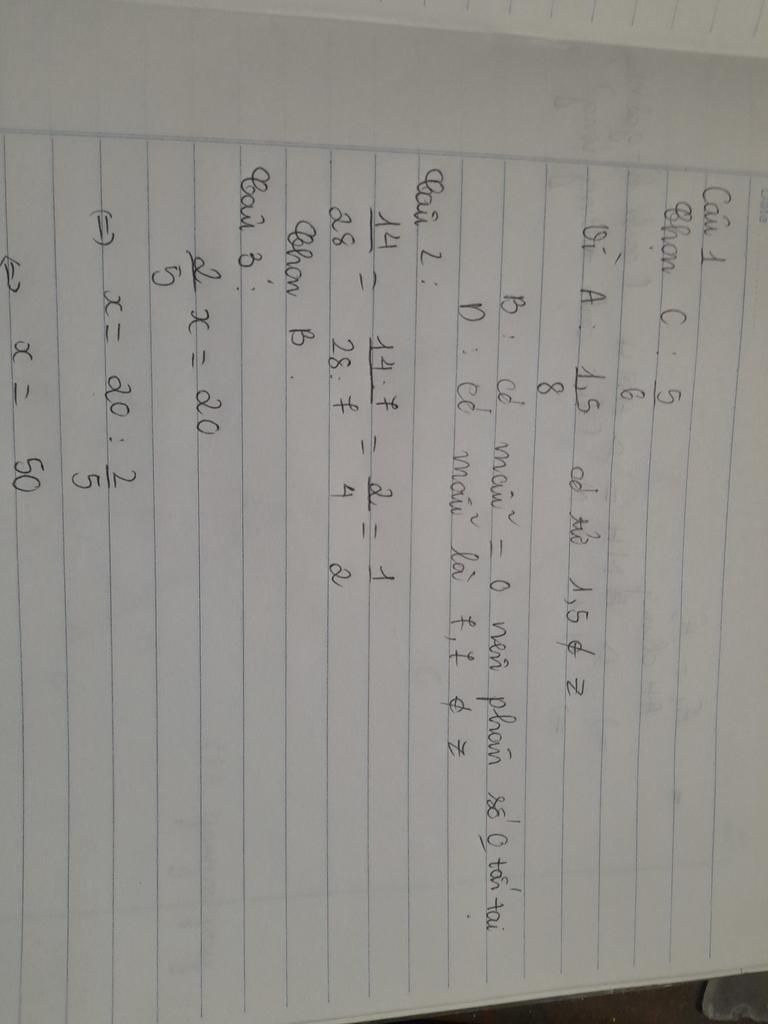 Câu 1
Chọn C : 5/6
Vì A : 1,5/8 có tử 1,5 ∉ Z
B : có mẫu = 0 nên phân số 0 tồn tại
D : có mẫu là 7,7 ∉ Z
Câu 2 :
14/28 = 14:7/28:7 = 2/4 = 1/2
Chọn B.
Câu 3 :
2/5 x = 20
(=) x = 20 : 2/5
(=) x = 50